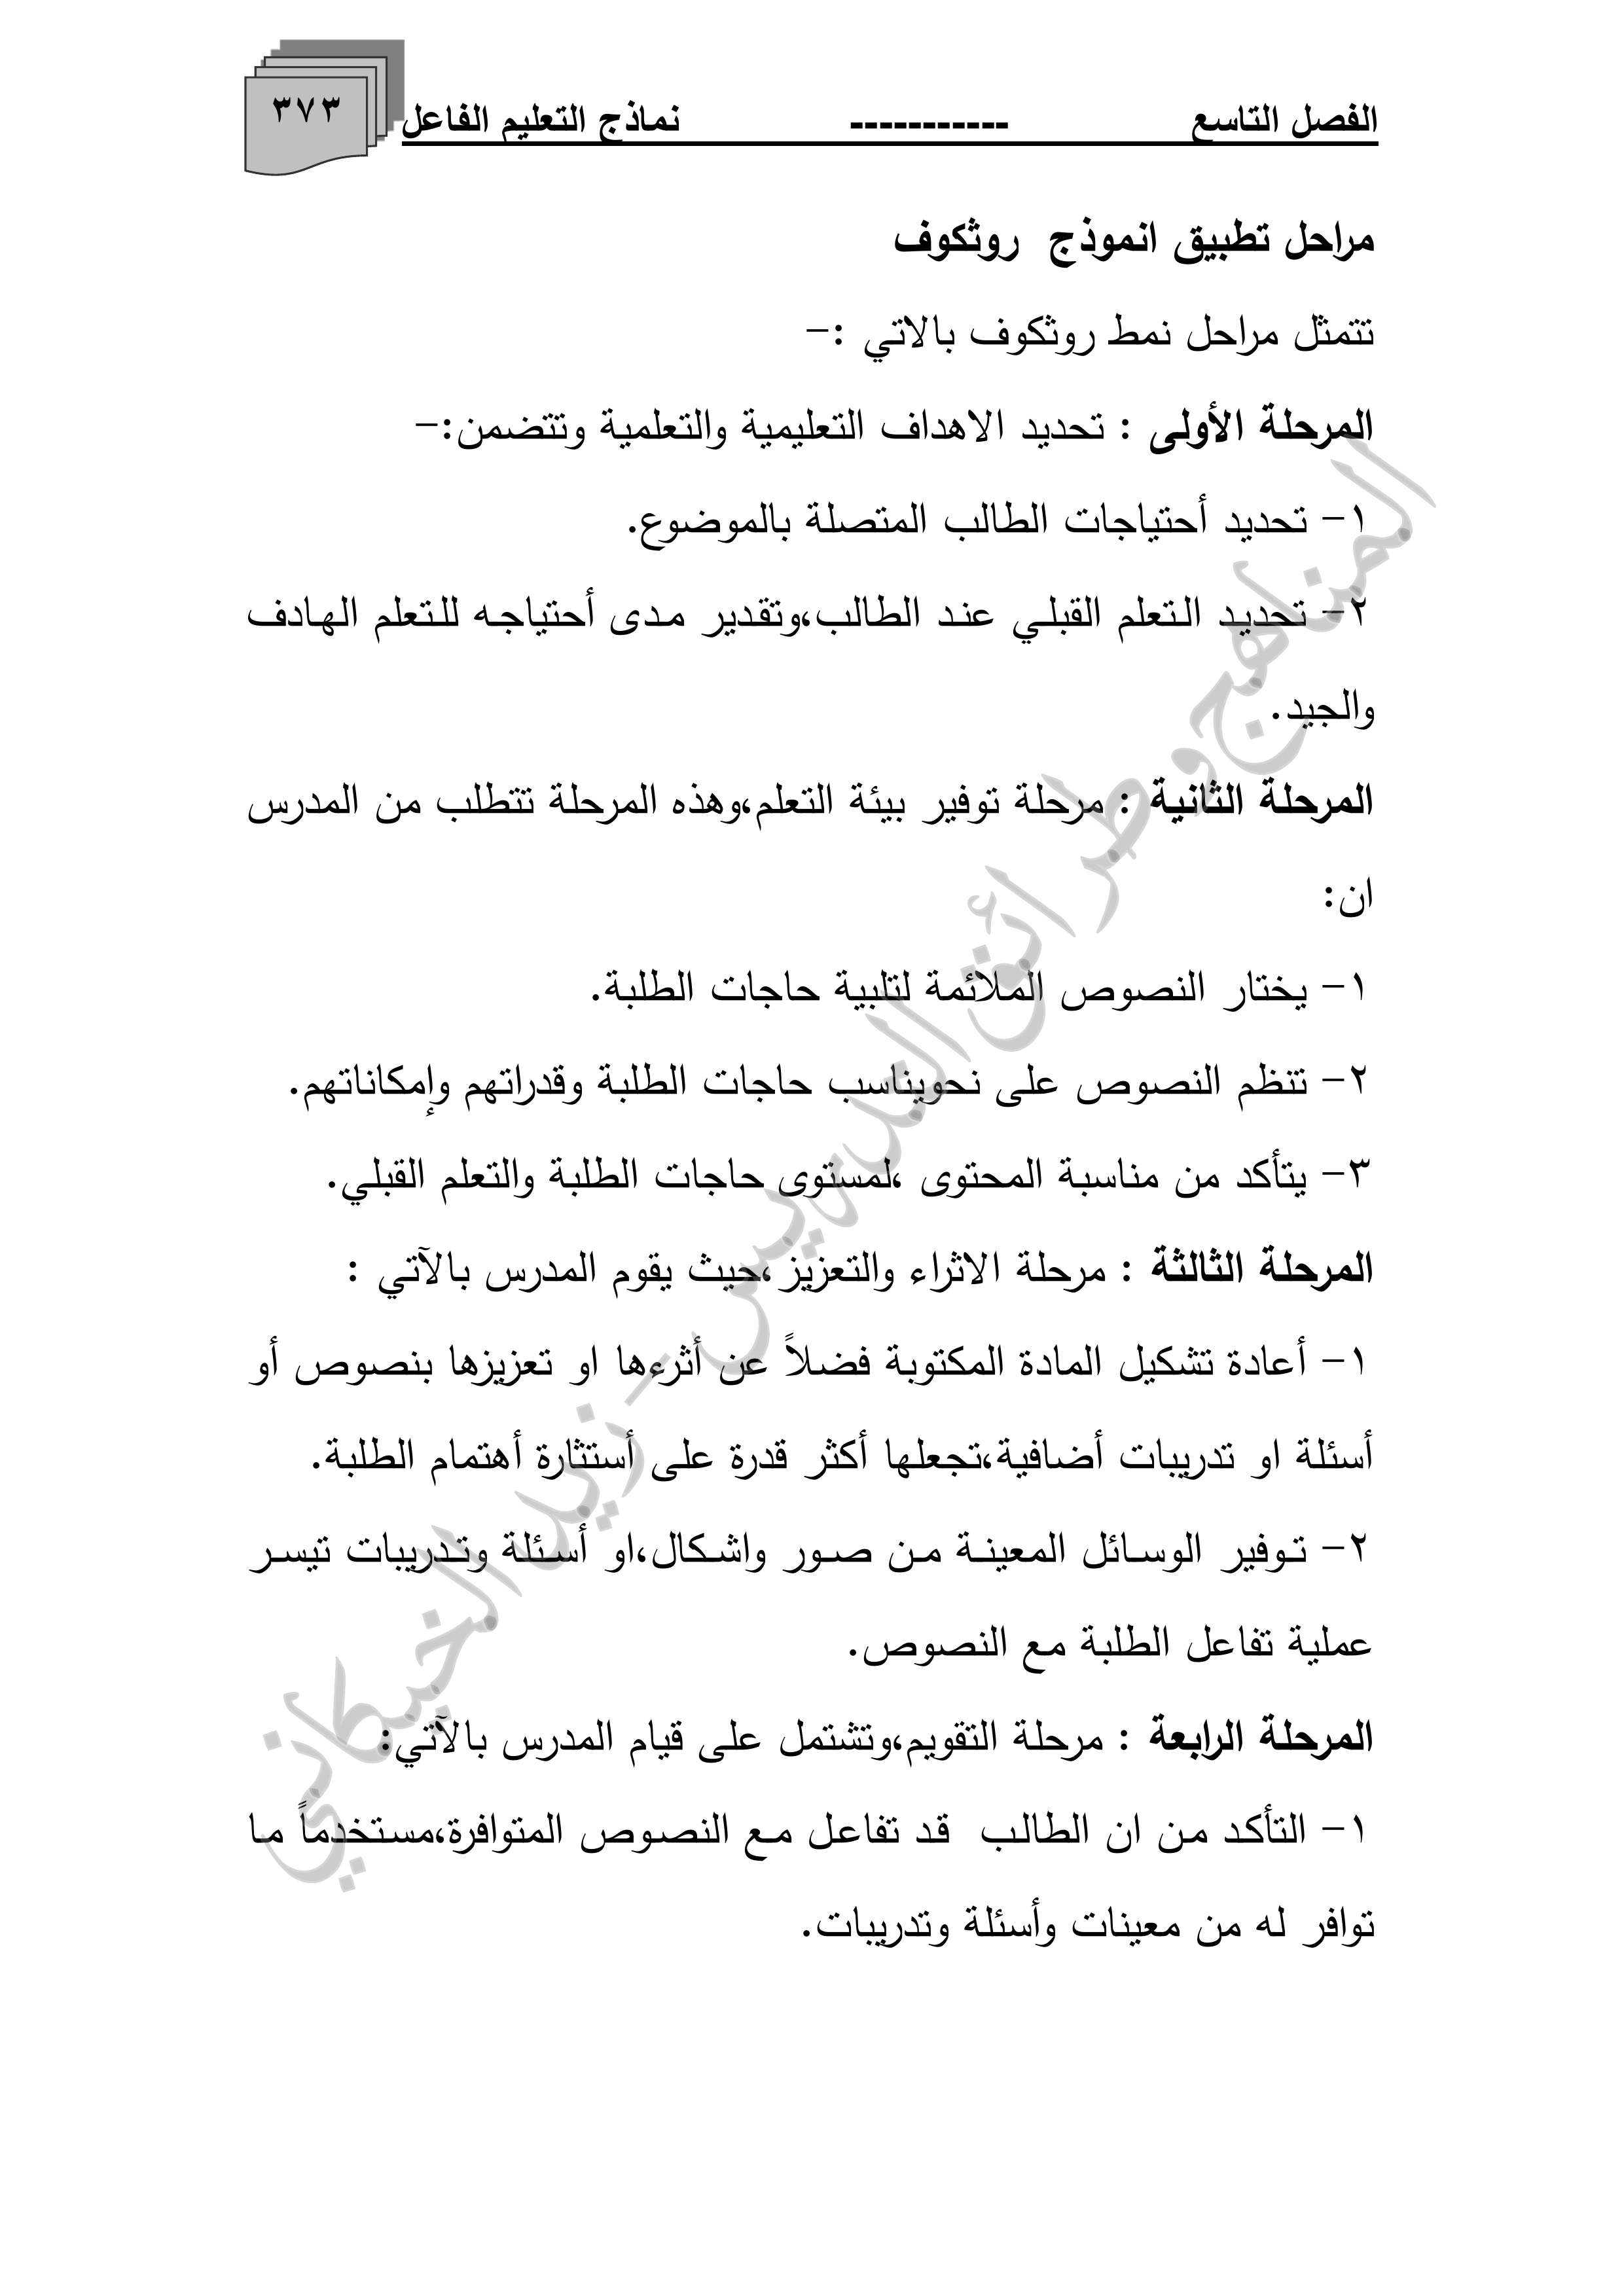 الفصل التاسع ----------- نماذج التعليم الفاعل ٣٧٣
مراحل تطبيق انموذج روثكوف
تتمثل مراحل نمط روثكوف بالاتي :-
المرحلة الأولى : تحديد الاهداف التعليمية والتعلمية وتتضمن:-
١- تحديد أحتياجات الطالب المتصلة بالموضوع.
٢- تحديد التعلم القبلي عند الطالب،وتقدير مدى أحتياجه للتعلم الهادف
والجيد.
المرحلة الثانية : مرحلة توفير بيئة التعلم،وهذه المرحلة تتطلب من المدرس
ان:
١- يختار النصوص الملائمة لتلبية حاجات الطلبة.
٢- تنظم النصوص على نحويناسب حاجات الطلبة وقدراتهم وإمكاناتهم.
٣- يتأكد من مناسبة المحتوى ،لمستوى حاجات الطلبة والتعلم القبلي.
المرحلة الثالثة : مرحلة الاثراء والتعزيز ،حيث يقوم المدرس بالآتي :
١- أعادة تشكيل المادة المكتوبة فضلاً عن أثرءها او تعزيزها بنصوص أو
أسئلة او تدريبات أضافية،تجعلها أكثر قدرة على أستثارة أهتمام الطلبة.
٢- توفير الوسائل المعينة من صور واشكال،او أسئلة وتدريبات تيسر
عملية تفاعل الطلبة مع النصوص.
المرحلة الرابعة : مرحلة التقويم،وتشتمل على قيام المدرس بالآتي:
١- التأكد من ان الطالب قد تفاعل مع النصوص المتوافرة،مستخدماً ما
توافر له من معينات وأسئلة وتدريبات.
المناهج وطرائق التدريس - زيد الخيكاني